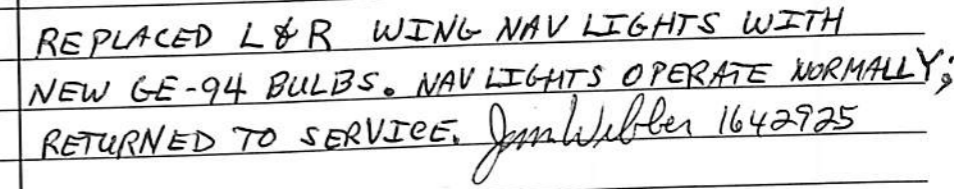 REPLACED L & R WING NAV LIGHTS WITH
NEW GE-94 BULBS. NAV LIGHTS OPERATE NORMALLY;
RETURNED TO SERVICE. Jim Webber 1642925